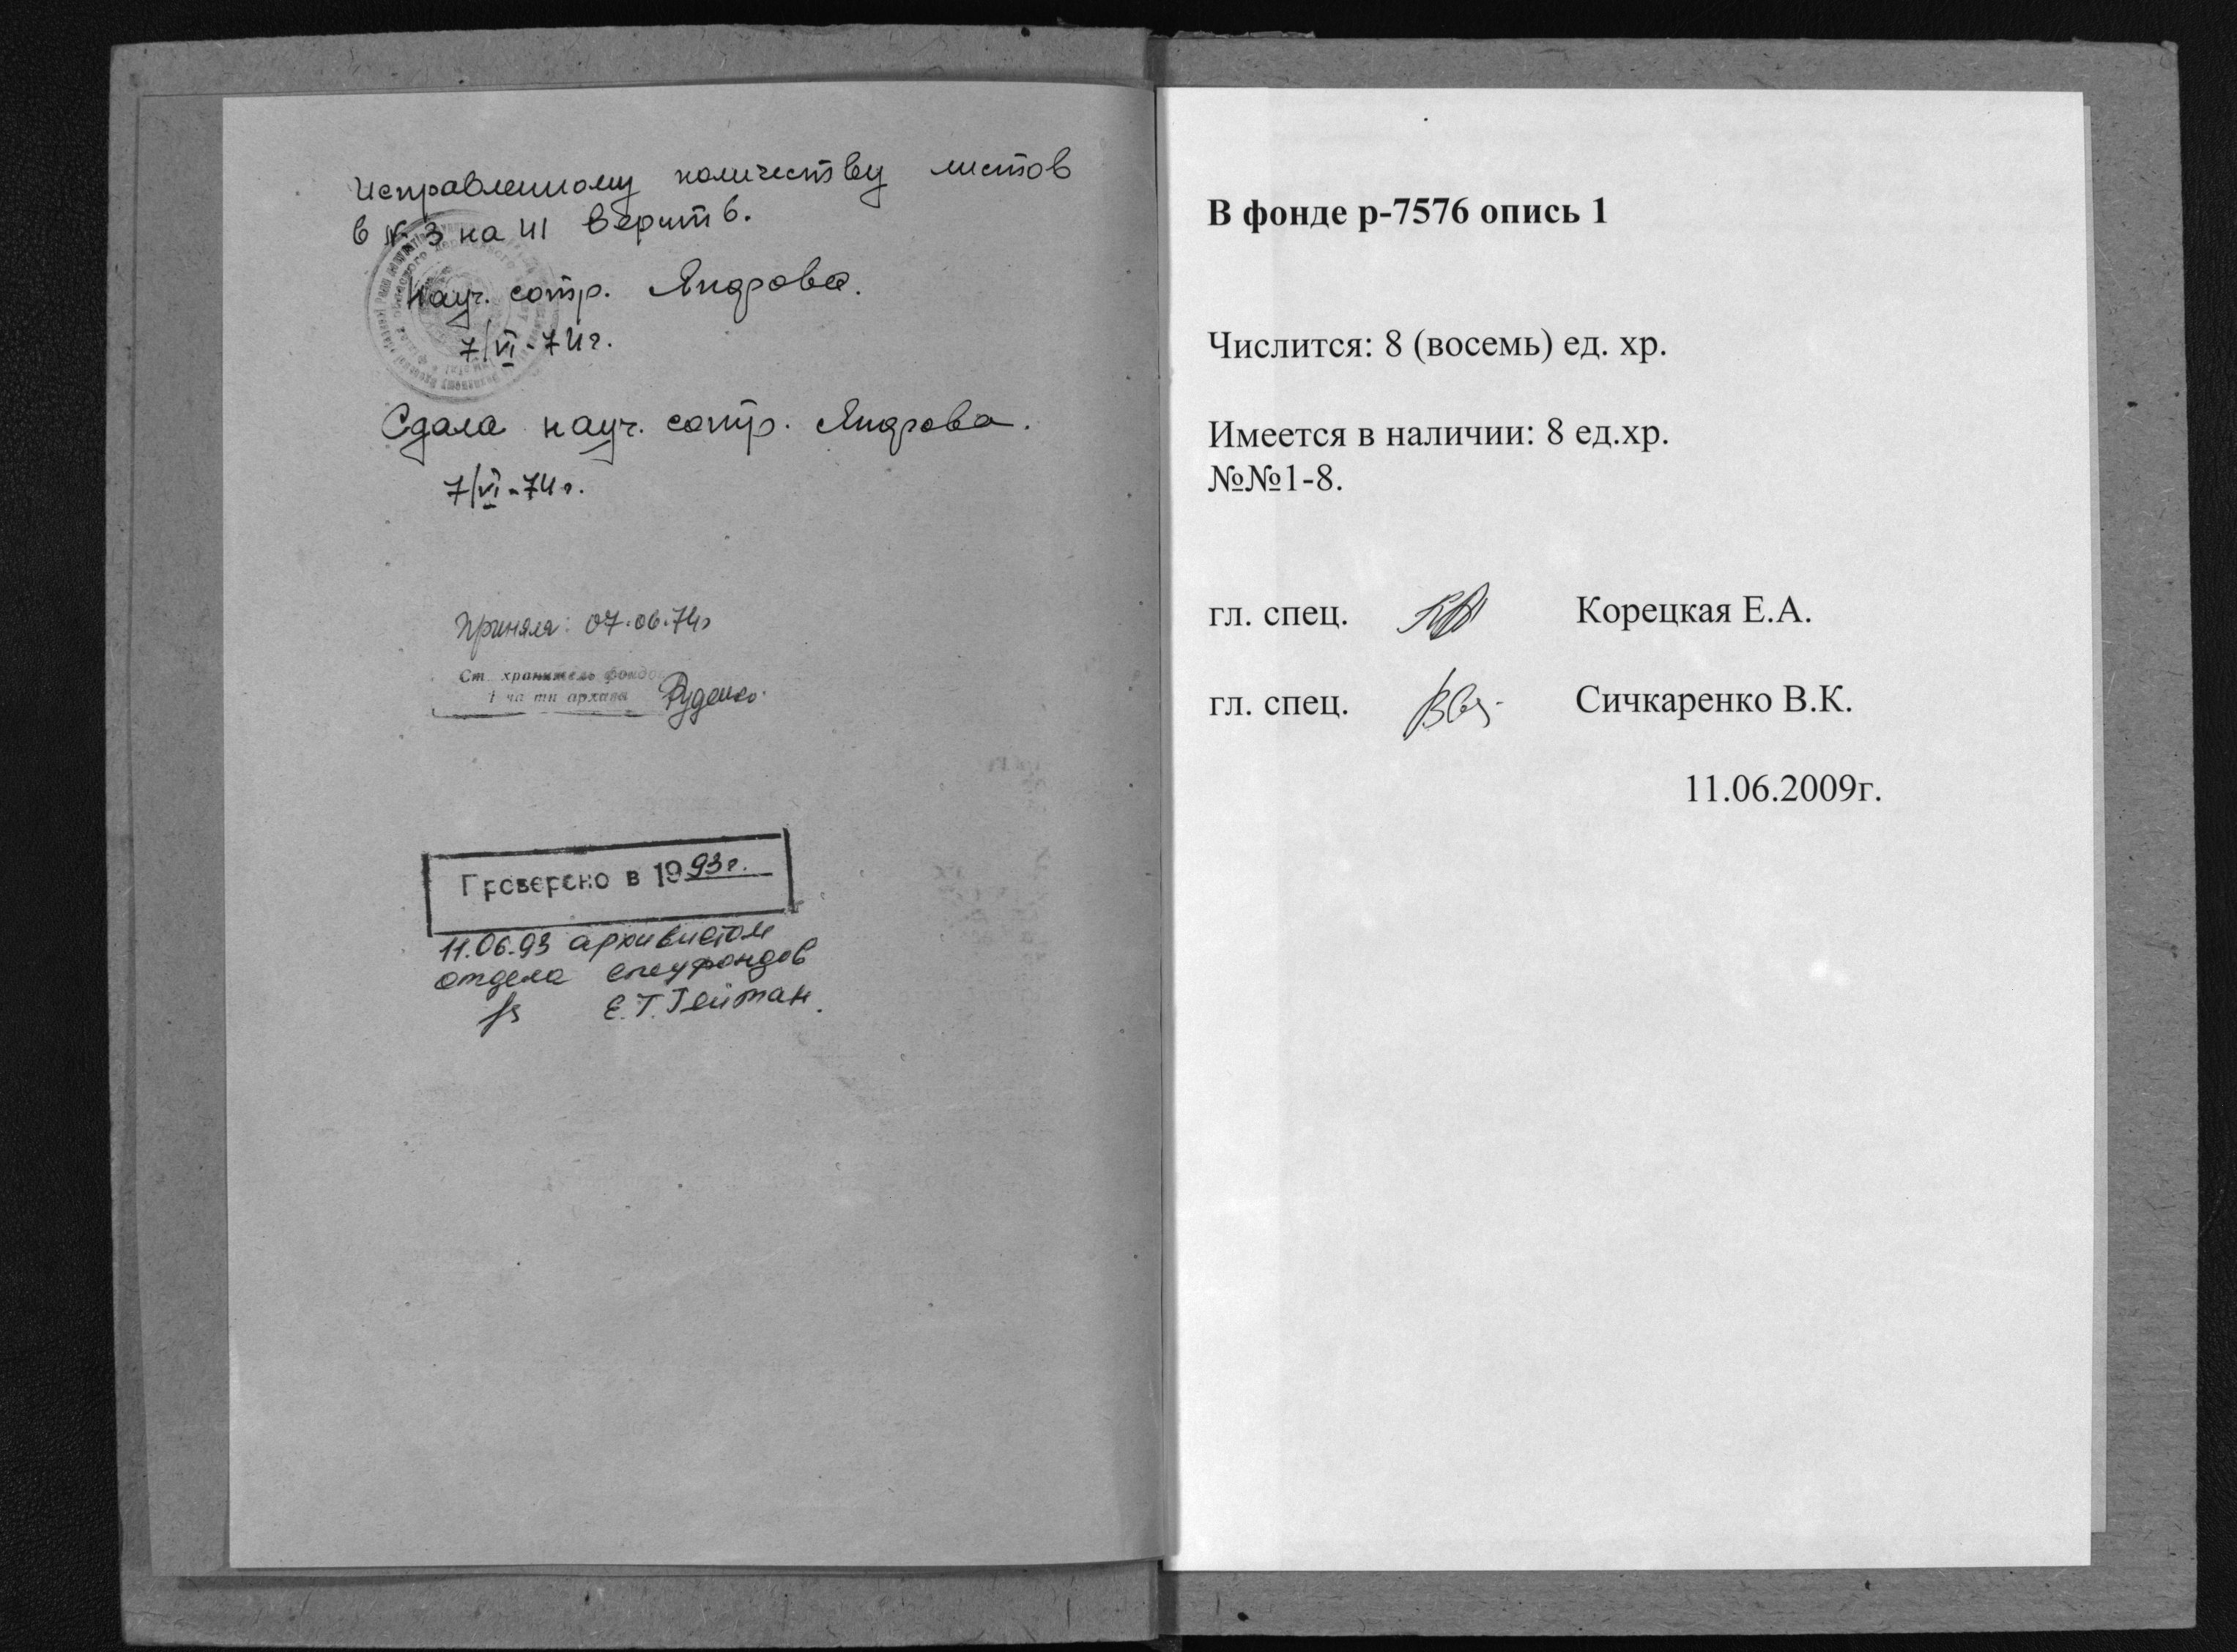 Исправленному количеству листов
в № 3 на 41 верить.
Науч. сотр. Яндрова.
7/VI-74г.
Сдала науч. сотр. Яндрова.
7/VI-74г.
Приняла: 07.06.74г
Ст. хранитель фондо
архива Руденко
Проверено в 1993г.
11.06.93 архивистом
отдела спецфондов
Е.Т. Гейтан.
В фонде р-7576 опись 1
Числится: 8 (восемь) ед. хр.
Имеется в наличии: 8 ед.хр.
№№1-8.
гл. спец. Корецкая Е.А.
гл. спец. Сичкаренко В.К.
11.06.2009г.